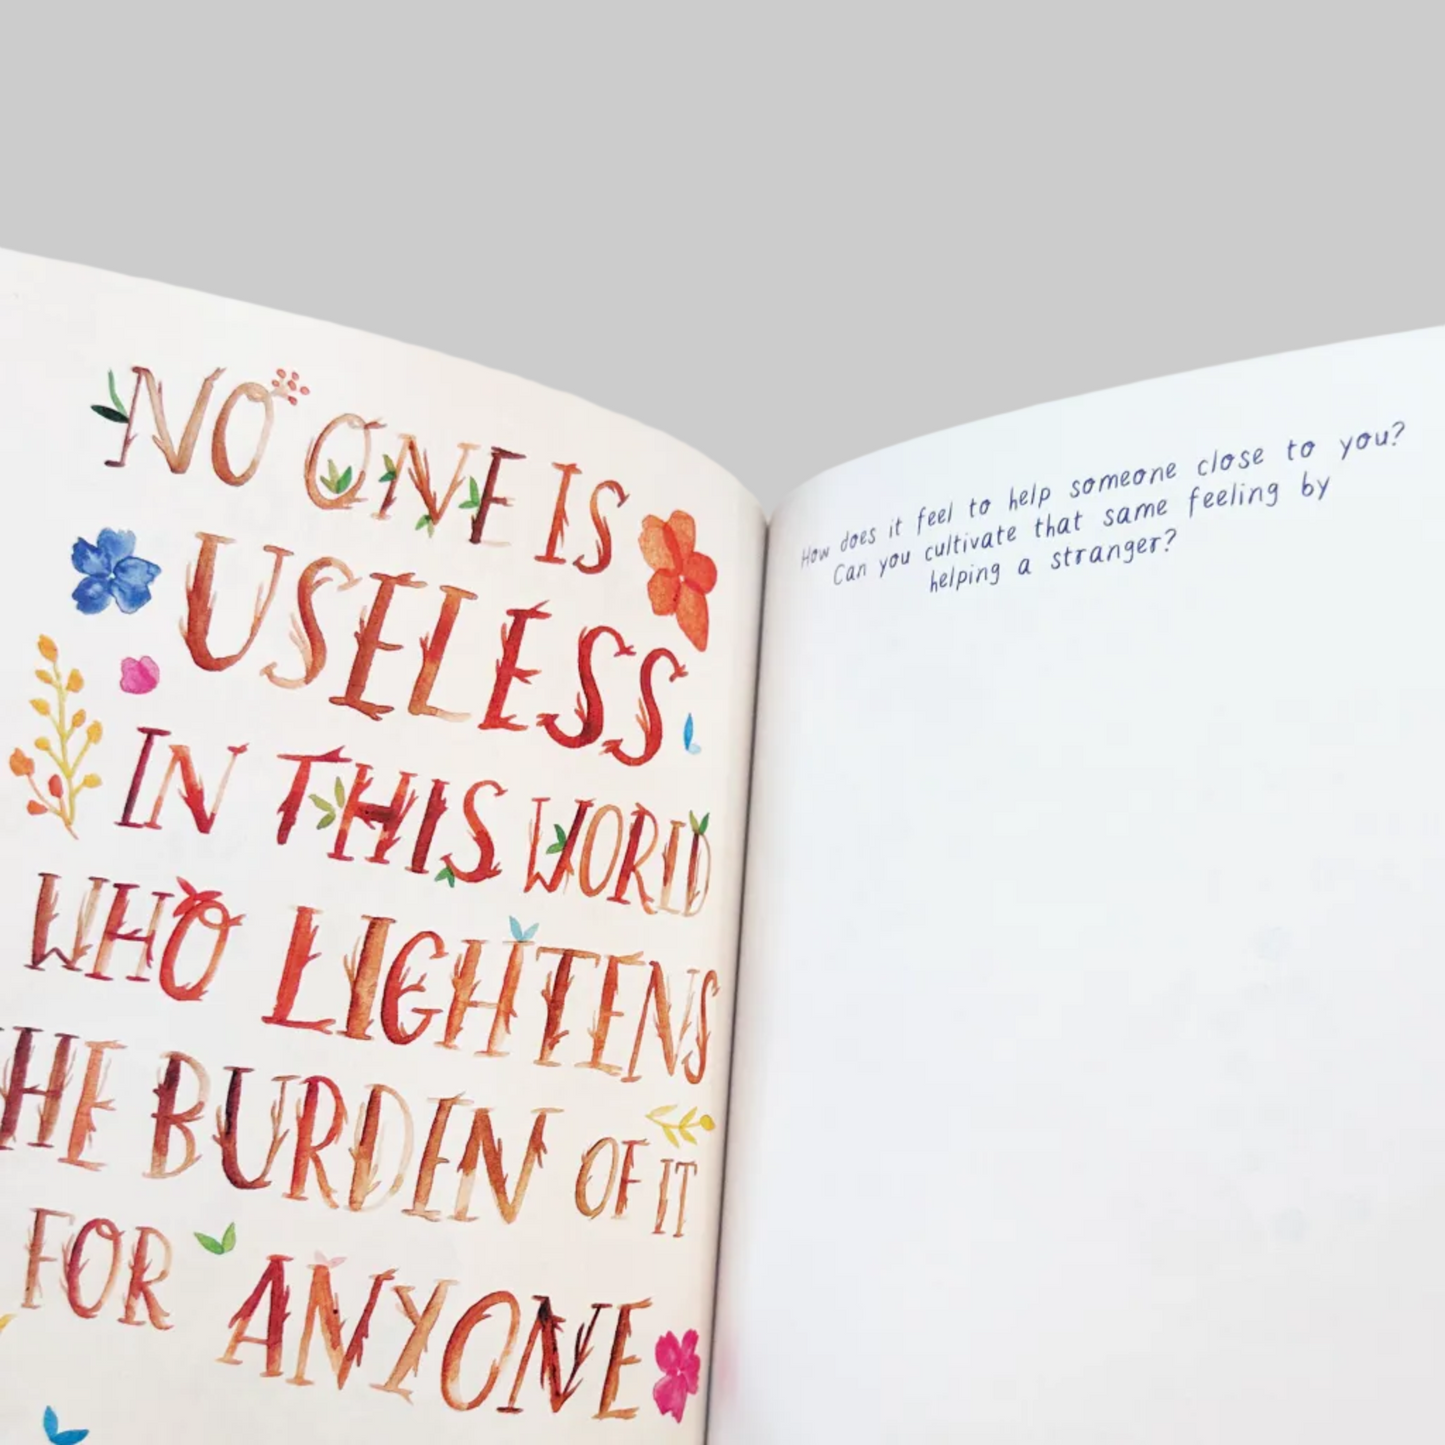 NO ONE IS
USELESS
IN THIS WORLD
WHO LIGHTENS
HE BURDEN OF IT
FOR ANYONE
How does it feel to help someone close to you?
Can you cultivate that same feeling by
helping a stranger?